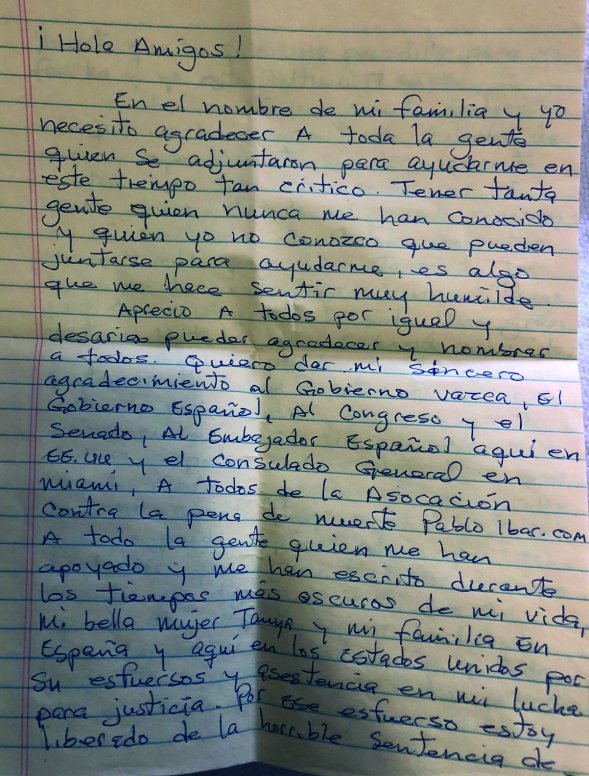 ¡Hola Amigos!
En el nombre de mi familia y yo
necesito agradecer A toda la gente
quien se adjuntaron para ayudarme en
este tiempo tan critico. Tener tanta
gente quien nunca me han conocido
y quien yo no conozco que pueden
juntarse para ayudarme, es algo
que me hace sentir muy humilde.
Aprecio A todos por igual y
desaria pueder agradecer y nombrar
a todos. Quiero dar mi sincero
agradecimiento al Gobierno vazca, El
Gobierno Español, Al Congreso y el
Senado, Al Embajador Español aquí en
EE.UU y el Consulado General en
Miami, A todos de la Asocación
Contra la pena de muerte Pablo Ibar.com
A todo la gente quien me han
apoyado y me han escrito durante
los tiempos más oscuros de mi vida,
Mi bella mujer Tanya y mi familia en
España y aquí en los Estados Unidos por
Su esfuersos y asestencia en mi lucha
para justicia. Por ese esfuerso estoy
liberado de la horrible Sentencia de